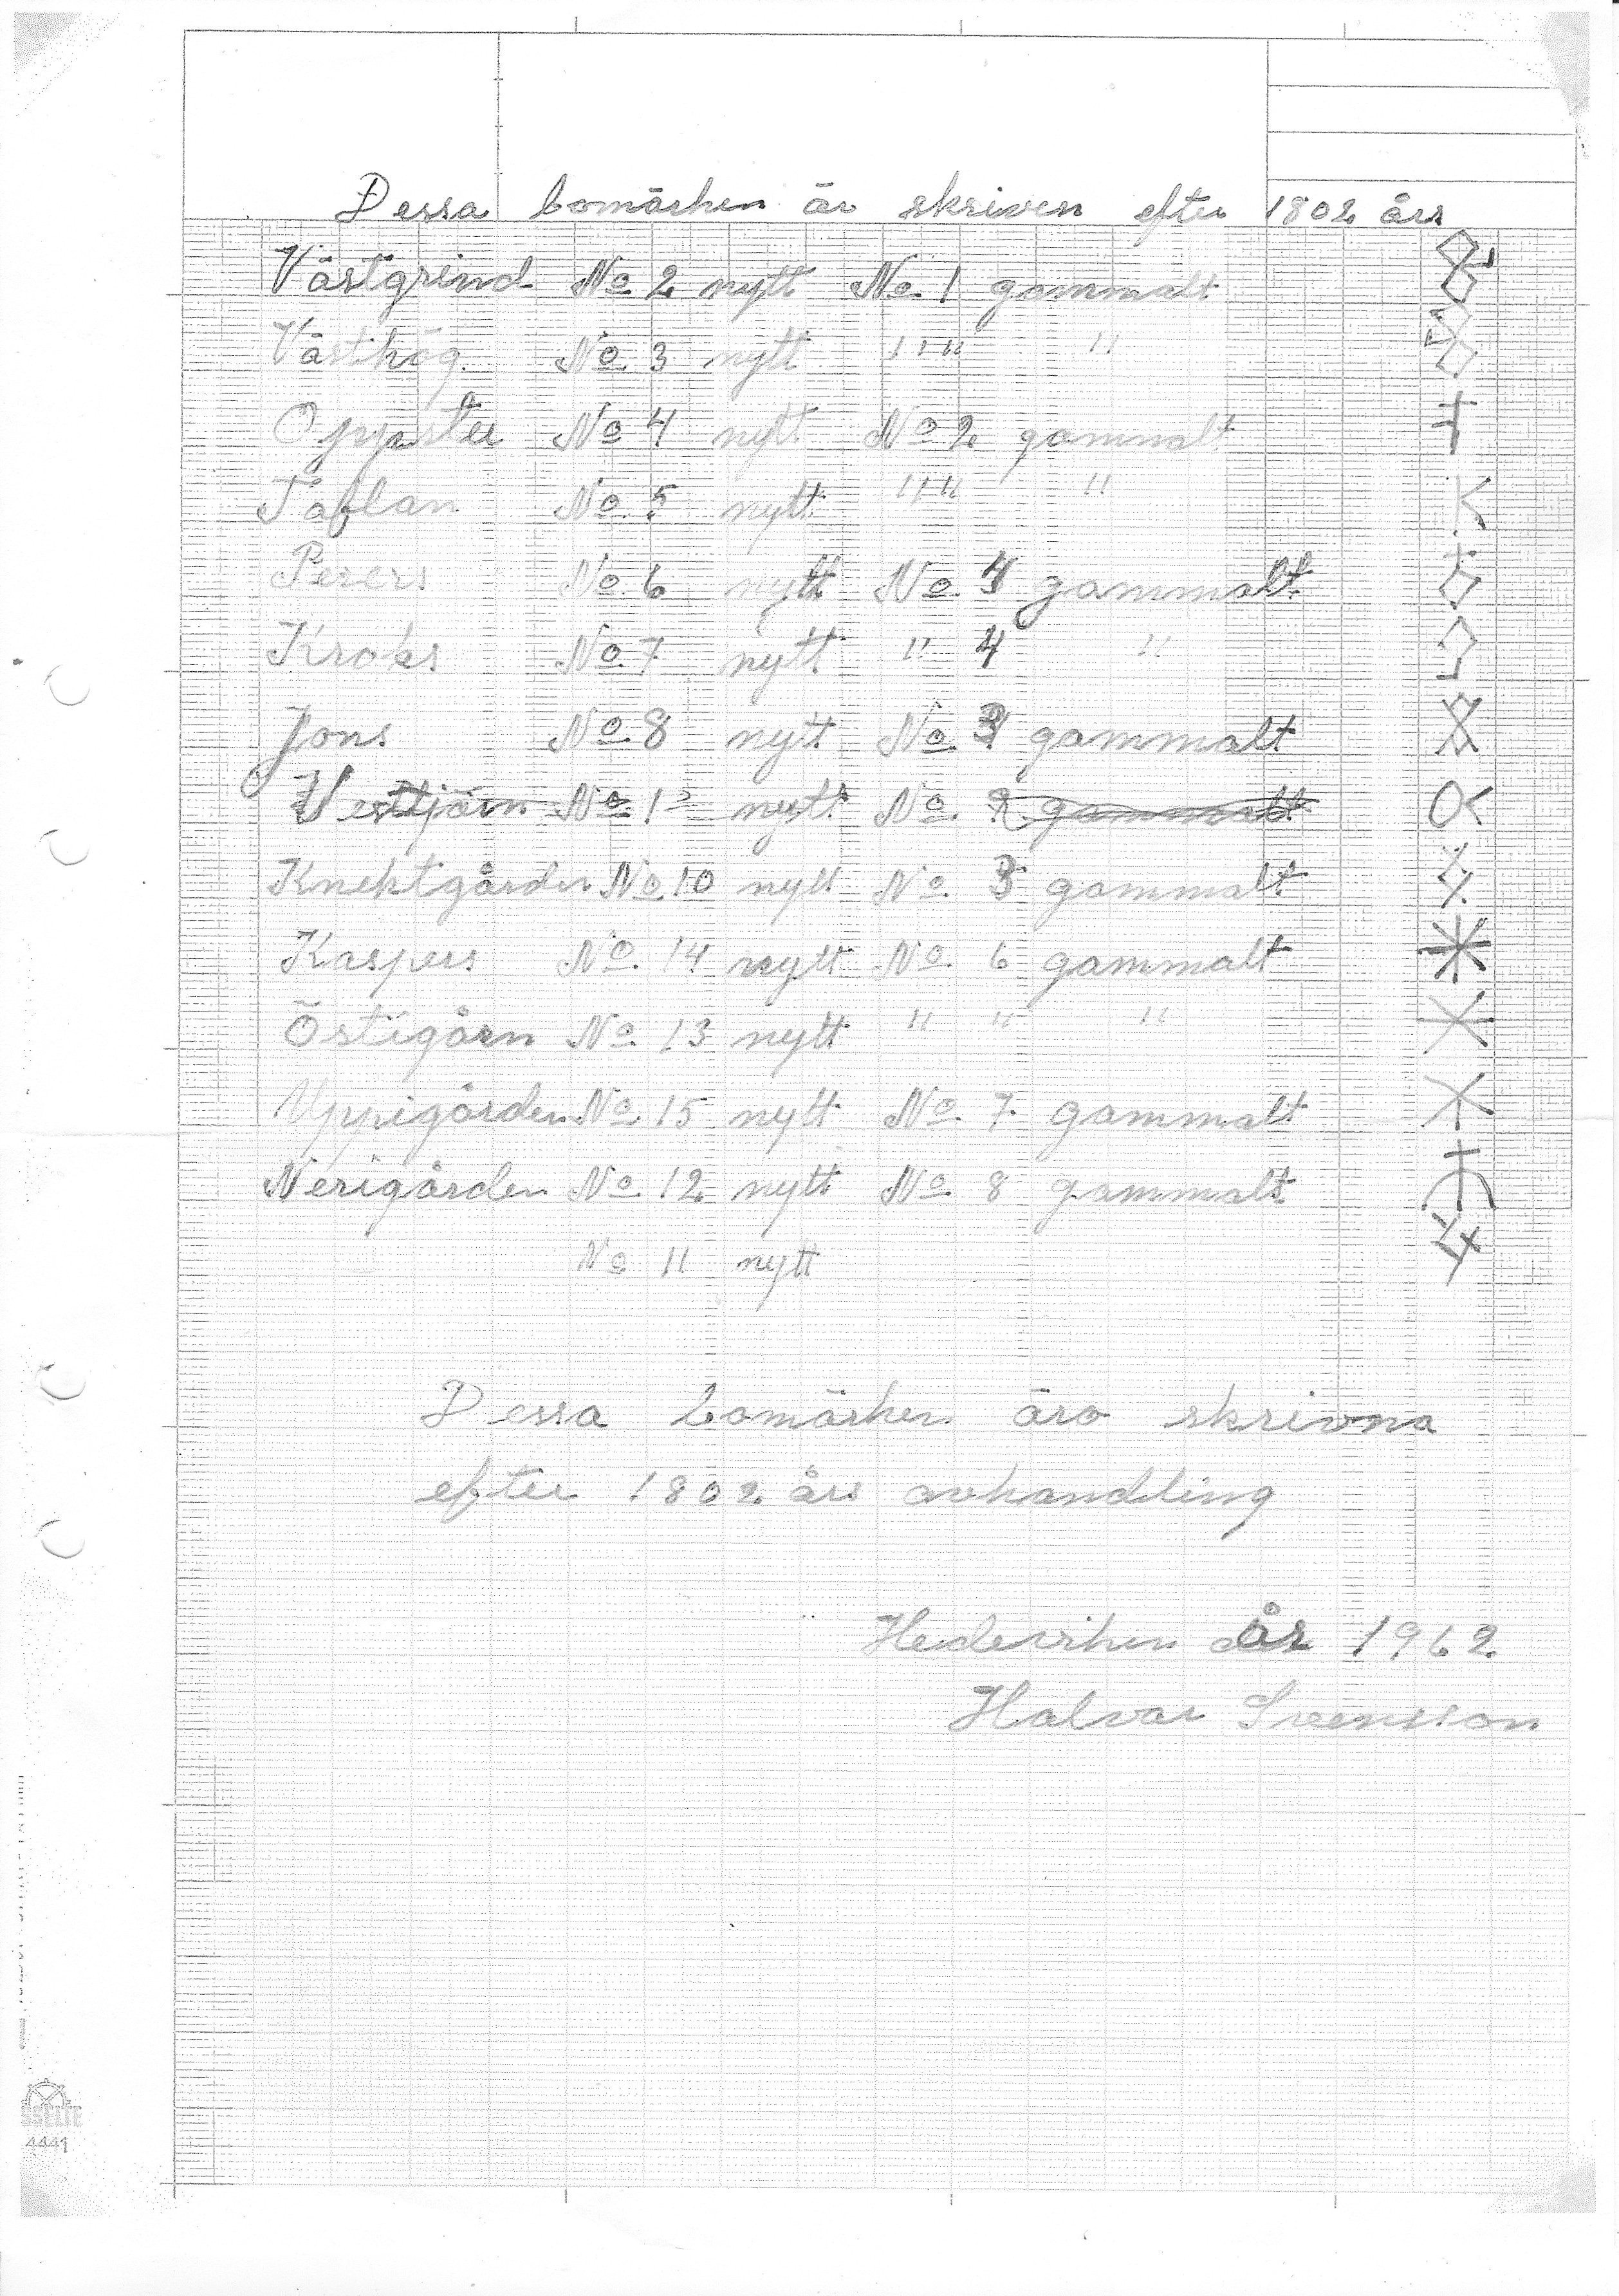 Dessa bomärken är skriven efter 1802 års
Västgrind No 2 nytt No 1 gammalt
Västhög No 3 nytt " " "
Oppster No 4 nytt No 2 gammalt
Täflan No 5 nytt " " "
Perers No 6 nytt No 4 gammalt
Kroks No 7 nytt " 4 "
Jons No 8 nytt No 3 gammalt
No nytt No gammalt
Knektgården No 10 nytt No 3 gammalt
Kaspers No 14 nytt No 6 gammalt
Östigårn No 13 nytt " " "
Uppigården No 15 nytt No 7 gammalt
Nerigården No 12 nytt No 8 gammalt
No 11 nytt
Dessa bomärken äro skrivna
efter 1802 års avhandling
Hedeviken år 1962
Halvar Svensson
4441